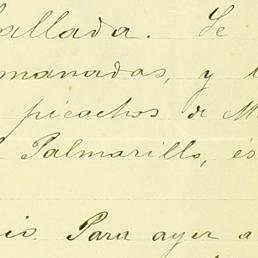 allada. Se
manadas, y
picachos de M
Palmarillo, és
io. Para ayer a